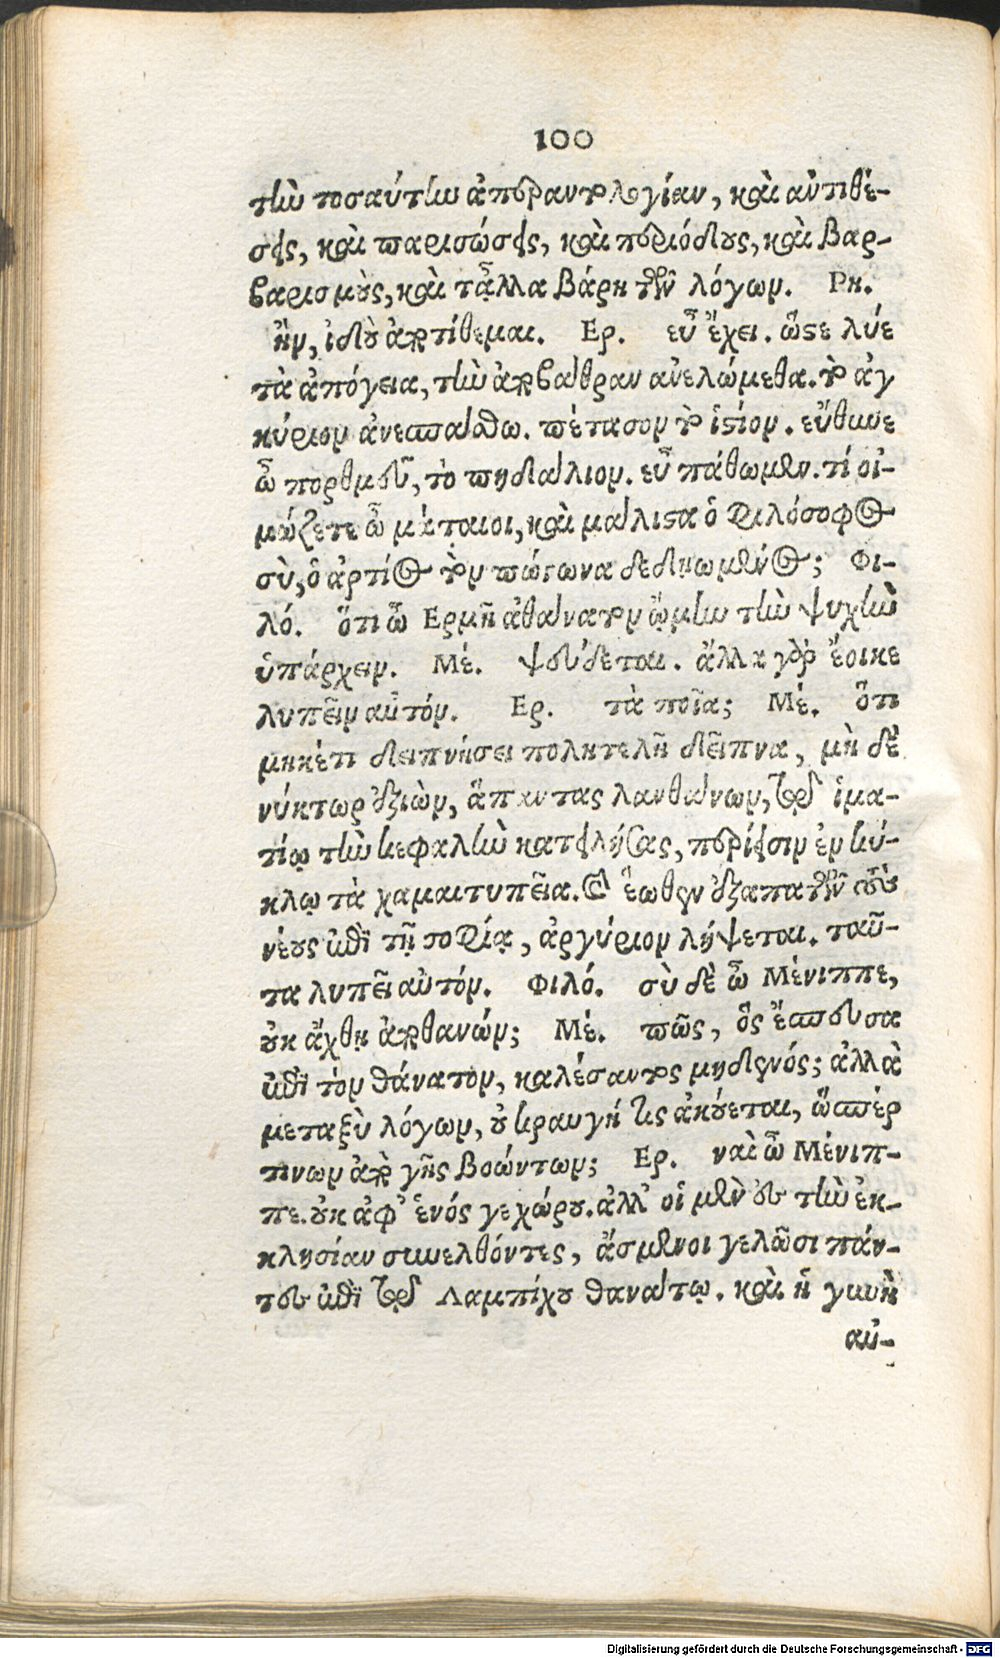 100
τὴν τοσαύτην ἀπεραντολογίαν, καὶ ἀντιθέ-
σεις, καὶ παρισώσεις, καὶ περιόδους, καὶ βαρ-
βαρισμοὺς, καὶ τἆλλα βάρη τῶν λόγων. Ρη.
ἢν, ἰδοὺ ἀποτίθεμαι. Ερ. εὖ ἔχει. ὥστε λύε
τὰ ἀπόγεια, τὴν ἀποβάθραν ἀνελώμεθα. τὸ ἀγ
κύριον ἀνεσπάσθω. πέτασον τὸ ἱστίον. εὔθυνε
ὦ πορθμεῦ, τὸ πηδάλιον. εὖ πάθωμεν. τί οἰ-
μώζετε ὦ μάταιοι, καὶ μάλιστα ὁ φιλόσοφος
σὺ, ὁ ἀρτίως τὸν πώγωνα δεδῃωμένος; Φι-
λό. ὅτι ὦ Ερμῆ ἀθάνατον ᾤμην τὴν ψυχὴν
ὑπάρχειν. Μέ. ψεύδεται. ἄλλα γὰρ ἔοικε
λυπεῖν αὐτόν. Ερ. τὰ ποῖα; Μέ. ὅτι
μηκέτι δειπνήσει πολυτελῆ δεῖπνα, μὴ δὲ
νύκτωρ ἐξιὼν, ἅπαντας λανθάνων, τῷ ἱμα-
τίῳ τὴν κεφαλὴν κατειλήσας, περίεισιν ἐν κύ-
κλῳ τὰ χαμαιτυπεῖα. καὶ ἕωθεν ἐξαπατῶν τοὺς
νέους ἐπὶ τῇ σοφίᾳ, ἀργύριον λήψεται. ταῦ-
τα λυπεῖ αὐτόν. Φιλό. σὺ δὲ ὦ Μένιππε,
οὐκ ἄχθῃ ἀποθανών; Μέ. πῶς, ὃς ἔσπευσα
ἐπὶ τὸν θάνατον, καλέσαντος μηδενός; ἀλλὰ
μεταξὺ λόγων, οὐ κραυγή τις ἀκούεται, ὥσπέρ
τινων ἀπὸ γῆς βοώντων; Ερ. ναὶ ὦ Μένιπ-
πε. οὐκ ἀφ’ ἑνός γε χώρου. ἀλλ’ οἱ μὲν ἐς τὴν ἐκ-
κλησίαν συνελθόντες, ἄσμενοι γελῶσι πάν-
τες ἐπὶ τῷ Λαμπίχου θανάτῳ. καὶ ἡ γυνὴ
αὐ-
Digitalisierung gefördert durch die Deutsche Forschungsgemeinschaft - DFG